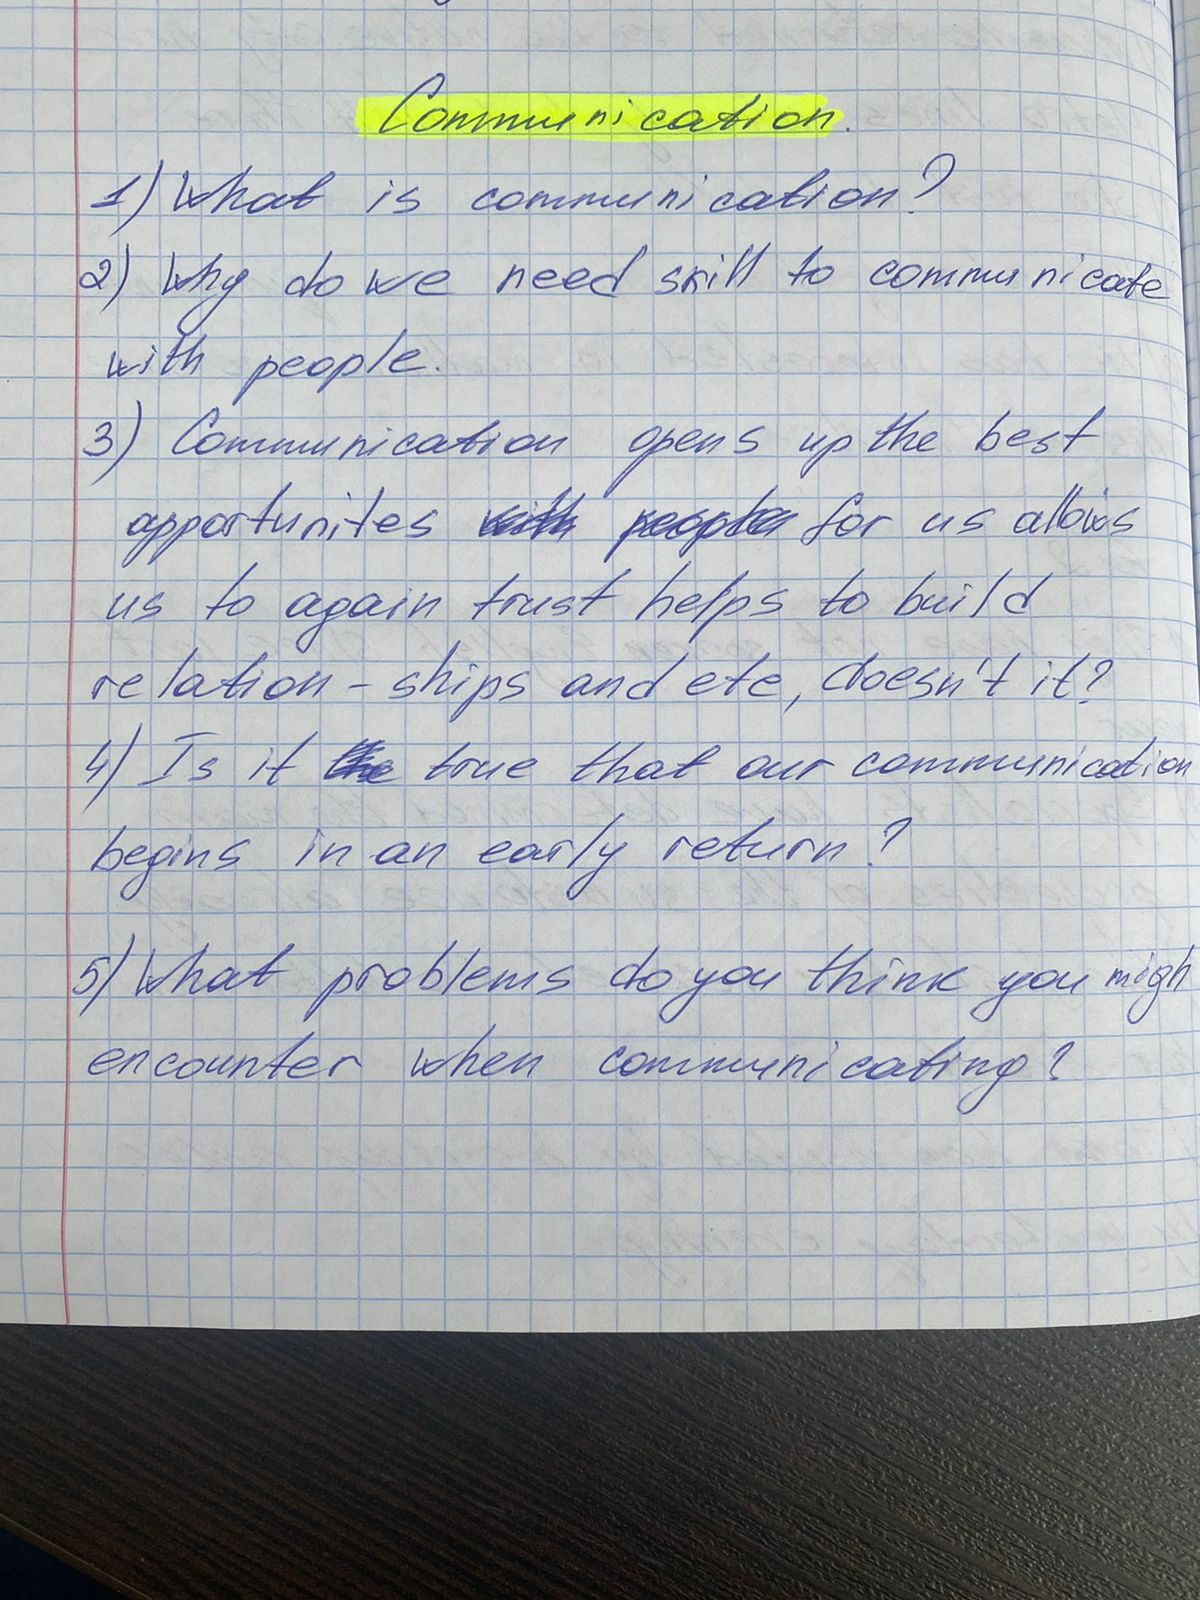 Communication.
1) What is communication?
2) Why do we need skill to communicate
with people.
3) Communication opens up the best
apportunites for us allows
us to again trust helps to build
relation-ships and ete, doesn't it?
4) Is it true that our communication
begins in an early return?
5) What problems do you think you migh
encounter when communicating?